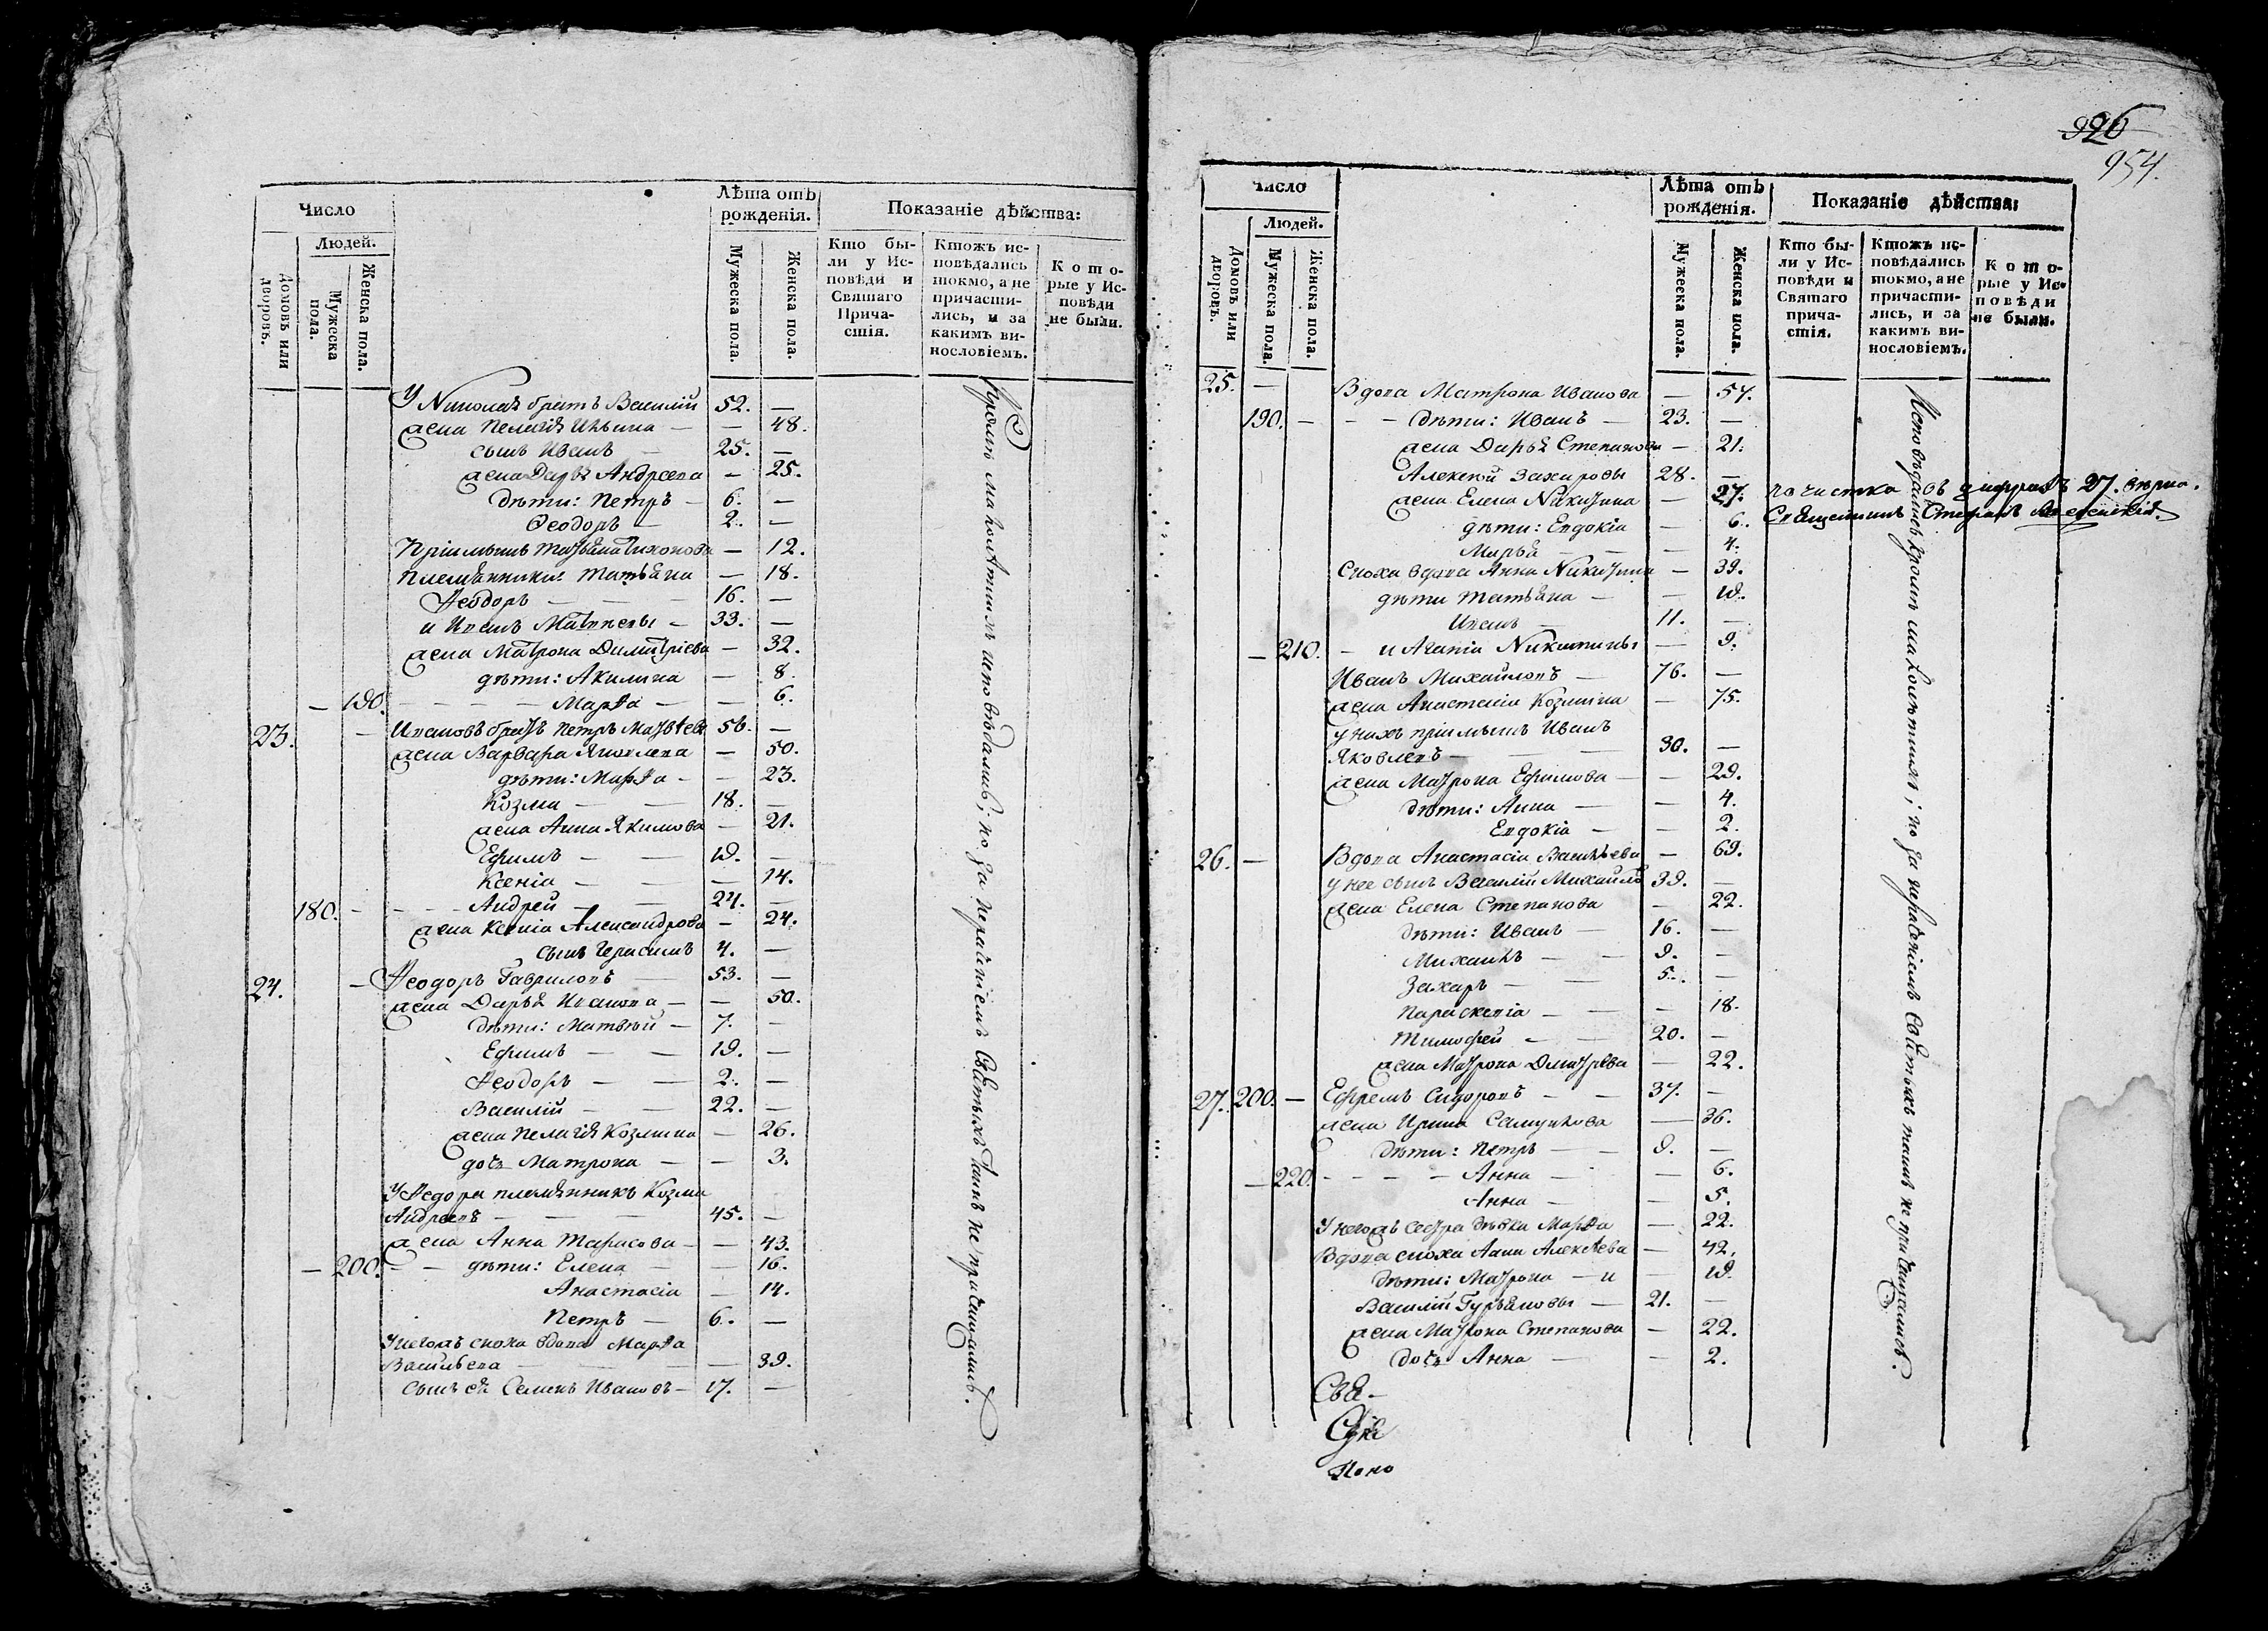 Число
Людей.
Домовъ или дворовъ.
Мужеска пола.
Женска пола.
Лѣта отъ рожденія.
Мужеска пола.
Женска пола.
Показаніе дѣйства:
Кто бы-
ли у Ис-
повѣди и
Святаго
Прича-
стія.
Ктожъ ис-
повѣдались
токмо, а не
причасти-
лись, и за
какимъ ви-
нословіемъ.
Кото-
рые у Ис-
повѣди
не были.
У Николая братъ Василій 52. —
жена Пелагія Ильина — — 48.
сынъ Иванъ — 25. —
жена Дарья Андреева — 25.
дѣти: Петръ — 6. —
Ѳеодоръ — 2. —
Пріемышъ Татьяна Тихонова — 12.
племянники: Татьяна — 18.
Ѳеодоръ — 16. —
и Иванъ Матвеевы — 33. —
жена Матрона Димитріева — 32.
дѣти: Акилина — 8.
— 190. — Марѳа — — 6.
23. — Ивановъ братъ Петръ Матвѣевъ 56. —
жена Варвара Яковлева — 50.
дѣти: Марѳа — — 23.
Козма — 18. —
жена Анна Якимова — 21.
Ефимъ — 19. —
Ксенія — — 14.
180. — Андрей — 24. —
жена Ксенія Александрова — 24.
сынъ Герасимъ 4. —
24. — Ѳеодоръ Гавриловъ — 53. —
жена Дарья Иванова — — 50.
дѣти: Матвѣй — 7. —
Ефимъ — 19. —
Ѳеодоръ — 2. —
Василій — 22. —
жена Пелагія Козмина — 26.
дочь Матрона — — 3.
У Ѳедора племянникъ Козма
Андреевъ — 45. —
жена Анна Тарасова — — 43.
— 200. — дѣти: Елена — — 16.
Анастасія — 14.
Петръ — 6. —
У негожъ сноха вдова Марѳа
Васильева — — 39.
сынъ ея Семенъ Ивановъ — 17. —
Кромѣ малолѣтнихъ исповѣдались; но за нераченіемъ Святыхъ Таинъ не причащались.
926
954.
Число
Людей.
Домовъ или дворовъ.
Мужеска пола.
Женска пола.
Лѣта отъ рожденія.
Мужеска пола.
Женска пола.
Показаніе дѣйства:
Кто бы-
ли у Ис-
повѣди и
Святаго
прича-
стія.
Ктожъ ис-
повѣдались
токмо, а не
причасти-
лись, и за
какимъ ви-
нословіемъ.
Кото-
рые у Ис-
повѣди
не были.
25. — Вдова Матрона Иванова — 57.
190. — — дѣти: Иванъ — 23. —
жена Дарья Степанова — 21.
Алексѣй Захаровы 28. —
жена Елена Никитина — 27. почистка въ цифрахъ 27. вѣрна.
дѣти: Евдокія — 6. Священникъ Стефанъ
Марья — — 4.
Сноха вдова Анна Никитина — 39.
дѣти Татьяна — — 19.
Иванъ — 11. —
— 210. — и Агапія Никитины — 9.
Иванъ Михайловъ — 76. —
жена Анастасія Козмина — 75.
у нихъ пріемышъ Иванъ
Яковлевъ — 30. —
жена Матрона Ефимова — — 29.
дѣти: Анна — — 4.
Евдокія — — 2.
26. — Вдова Анастасія Васильева — 69.
у нее сынъ Василій Михайловъ 39. —
жена Елена Степанова — 22.
дѣти: Иванъ — 16. —
Михаилъ — 9. —
Захаръ — 5. —
Параскевія — — 18.
Тимофей — 20. —
жена Матрона Дмитрева — 22.
27. 200. — Ефремъ Сидоровъ — 37. —
жена Ирина Самуилова — 36.
дѣти: Петръ — 9. —
— 220. — Анна — 6.
Анна — — 5.
У негожъ сестра дѣвка Марѳа — 22.
Вдова сноха Анна Алексѣева — 42.
дѣти: Матрона — и — 19.
Василій Гурьяновы — 21. —
жена Матрона Степанова — 22.
дочь Анна — — 2.
Свя-
Поно
Исповѣдались кромѣ малолѣтнихъ; но за нераченіемъ Святыхъ таинъ не причащались.